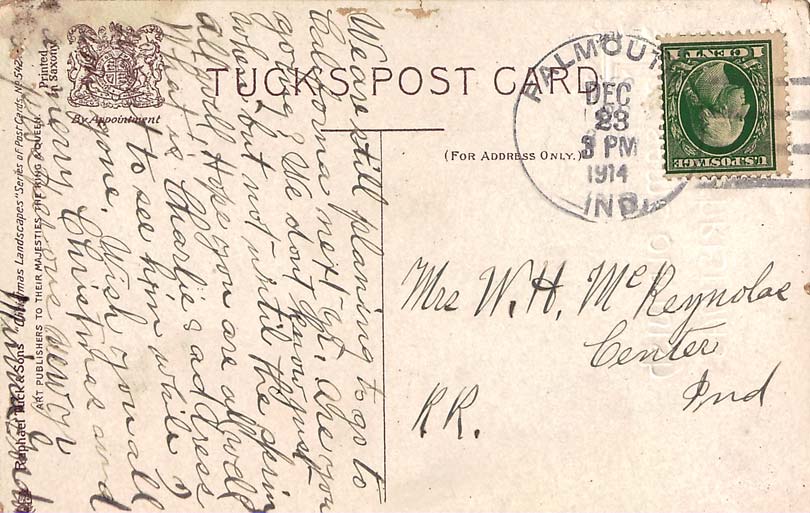 TUCK'S POST CARD
By Appointment
(FOR ADDRESS ONLY.)
FALMOUTH
DEC
23
3 PM
1914
IND.
1 CENT 1
U.S. POSTAGE
Mrs W. H. McReynolds
Center
Ind
RR.
We are still planing to go to
California next yr. Are you
going? We don't know just
when but not until the spring
all well, Hope you are all well
What is Charlie's address
to see him while
gone. Wish you all
a merry Christmas and
Raphael Tuck & Sons' "Christmas Landscapes" Series of Post Cards, No. 542
ART PUBLISHERS TO THEIR MAJESTIES THE KING & QUEEN.
Printed in Saxony